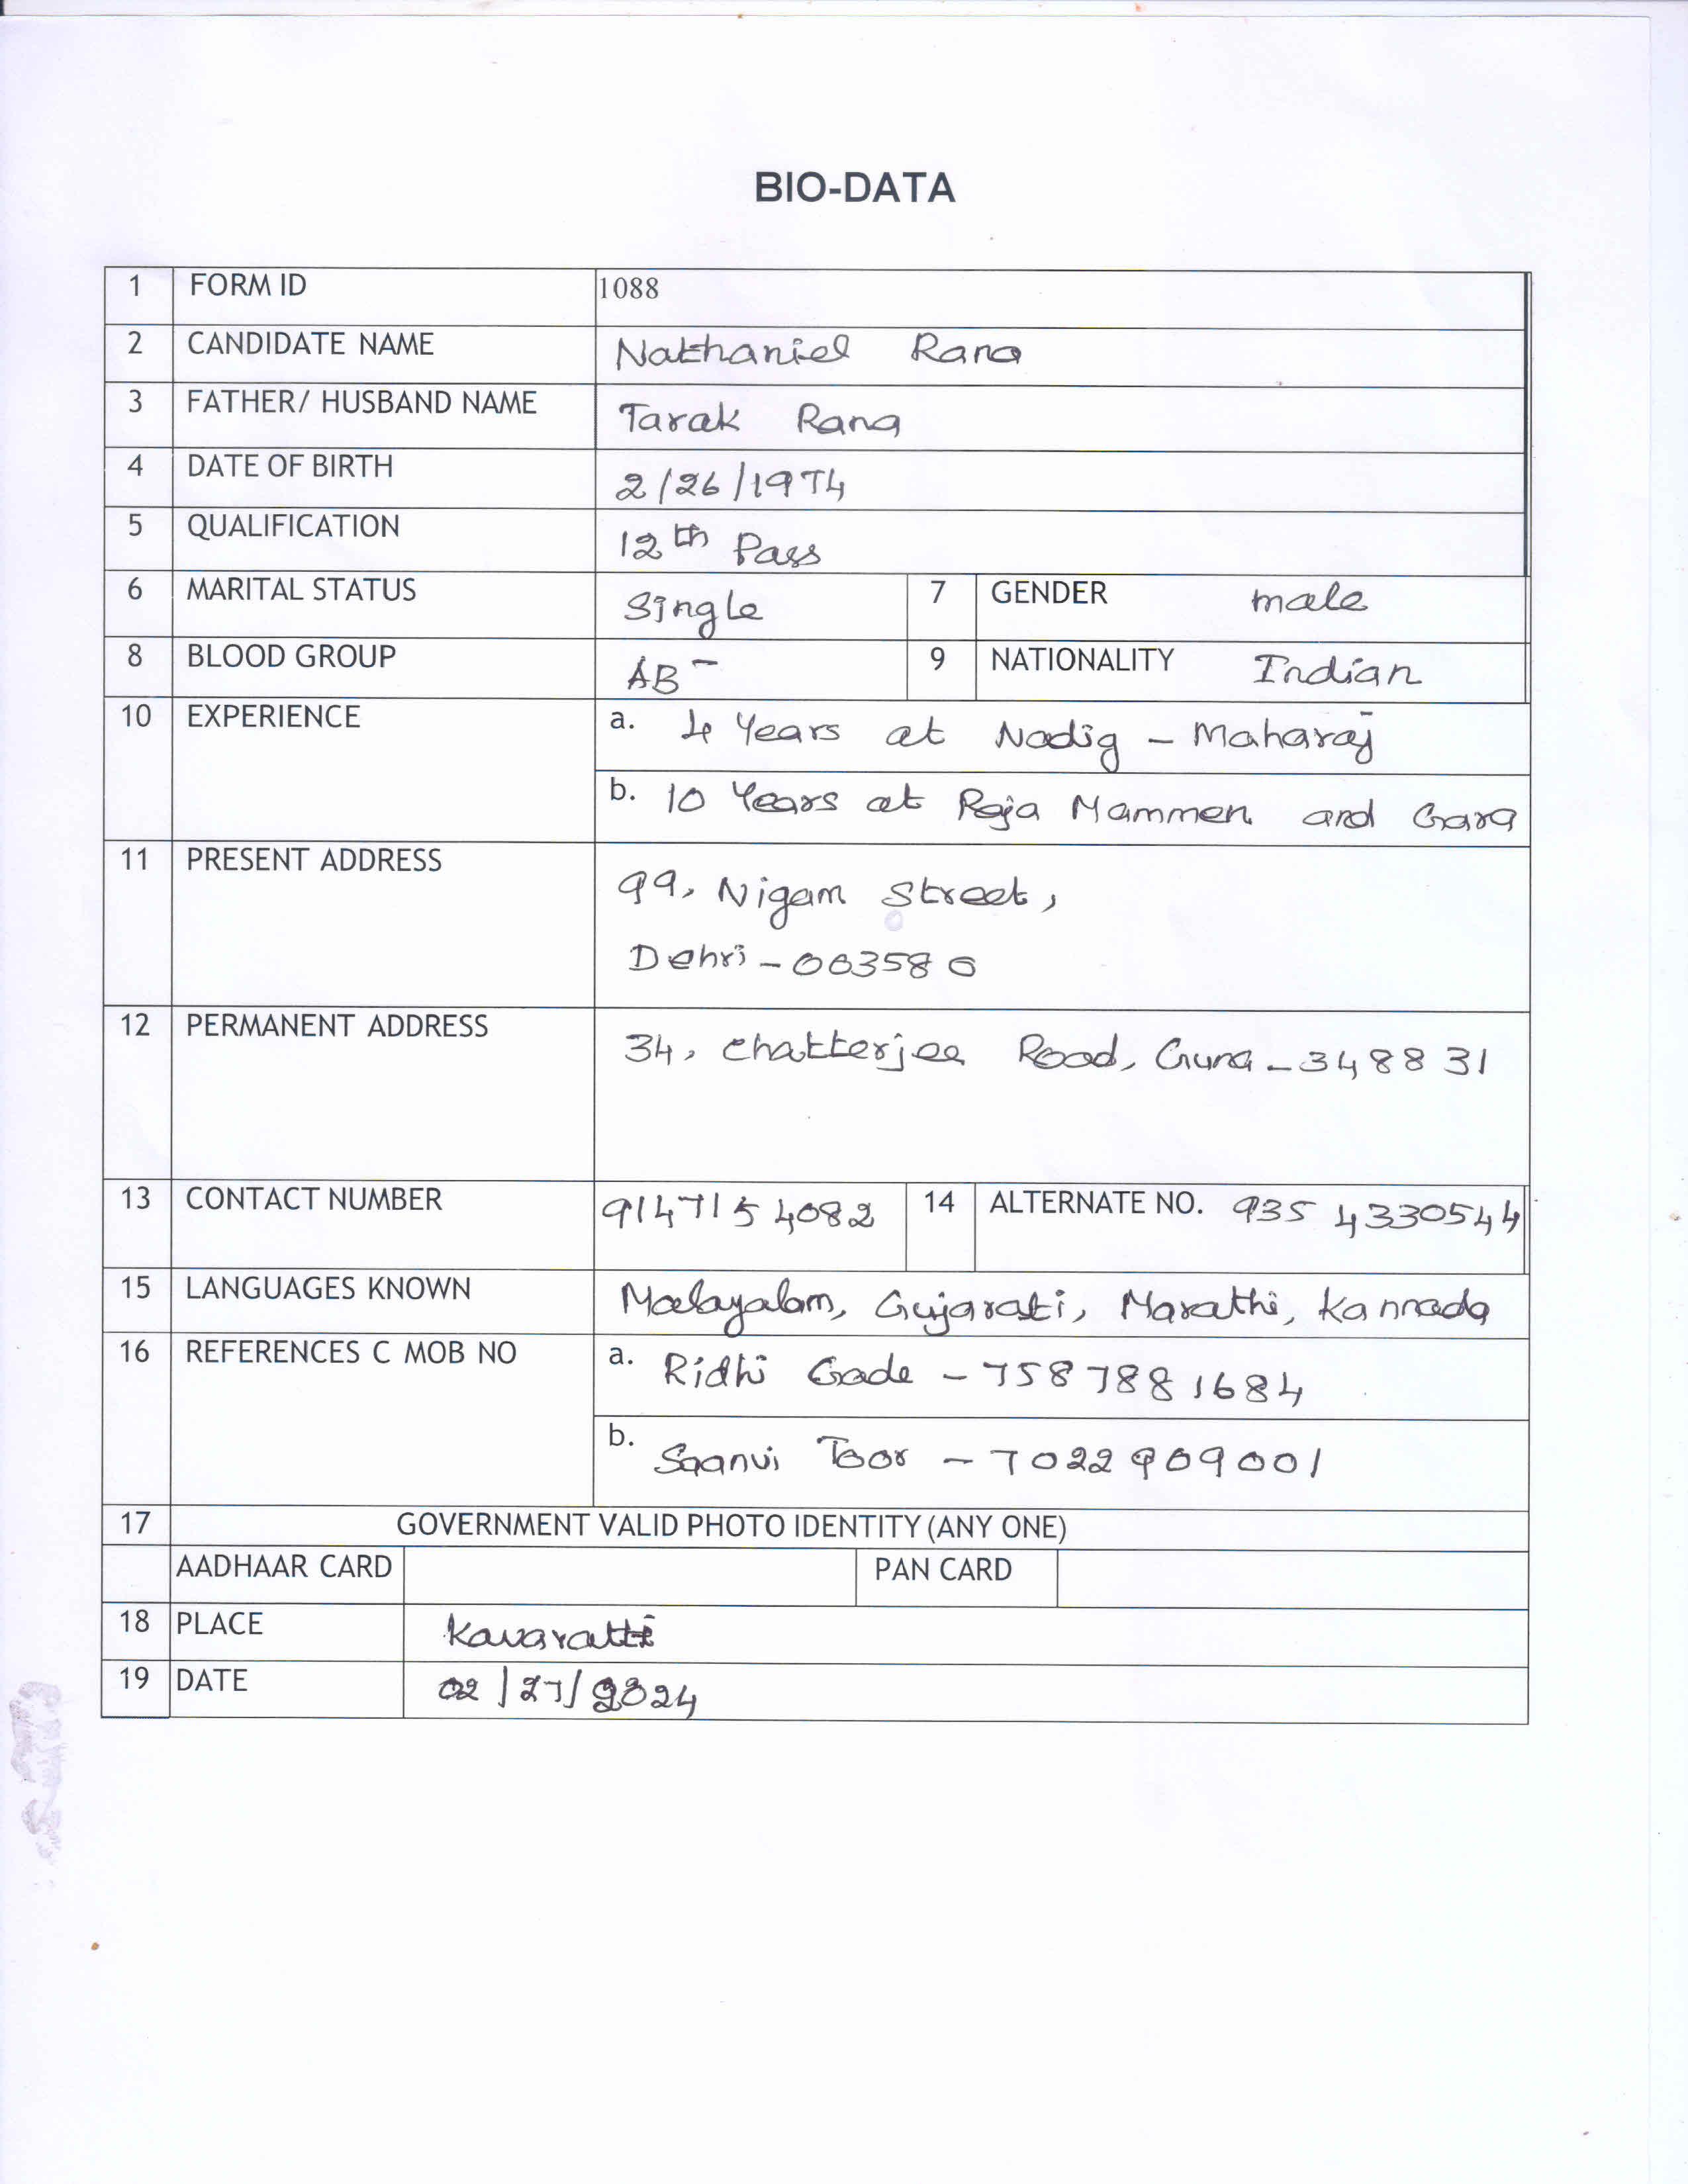 BIO-DATA
1 FORM ID 1088
2 CANDIDATE NAME Nathaniel Rana
3 FATHER/ HUSBAND NAME Tarak Rana
4 DATE OF BIRTH 2/26/1974
5 QUALIFICATION 12th Pass
6 MARITAL STATUS Single 7 GENDER male
8 BLOOD GROUP AB- 9 NATIONALITY Indian
10 EXPERIENCE a. 4 Years at Nadig - Maharaj
b. 10 Years at Raja Mammen and Gara
11 PRESENT ADDRESS 99, Nigam Street,
Dehri -
12 PERMANENT ADDRESS 34, Chatterjee Road, Guna - 348831
13 CONTACT NUMBER 9147154082 14 ALTERNATE NO. 9354330544
15 LANGUAGES KNOWN Malayalam, Gujarati, Marathi, Kannada
16 REFERENCES C MOB NO a. Ridhi Gade - 7587881684
b. Saanvi Toor - 7022909001
17 GOVERNMENT VALID PHOTO IDENTITY (ANY ONE)
AADHAAR CARD PAN CARD
18 PLACE Kavaratti
19 DATE 02/27/2024